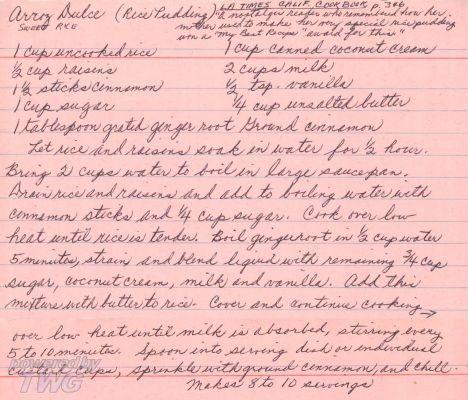 Arroz Dulce (Rice Pudding) LA TIMES CALIF. COOKBOOK p. 366,
SWEET RICE
"A nostalgic reader who remembered how her
mother used to make her now special rice pudding
won a "My Best Recipe" award for this."
1 cup uncooked rice 1 cup canned coconut cream
1/2 cup raisins 2 cups milk
1 1/2 sticks cinnamon 1/2 tsp. vanilla
1 cup sugar 1/4 cup unsalted butter
1 tablespoon grated ginger root Ground cinnamon
Let rice and raisins soak in water for 1/2 hour.
Bring 2 cups water to boil in large saucepan.
Drain rice and raisins and add to boiling water with
cinnamon sticks and 1/4 cup sugar. Cook over low
heat until rice is tender. Boil ginger root in 1/2 cup water
5 minutes, strain and blend liquid with remaining 3/4 cup
sugar, coconut cream, milk and vanilla. Add this
mixture with butter to rice. Cover and continue cooking →
over low heat until milk is absorbed, stirring every
5 to 10 minutes. Spoon into serving dish or individual
custard cups, sprinkle with ground cinnamon, and chill.
Makes 8 to 10 servings
powered by
TWG